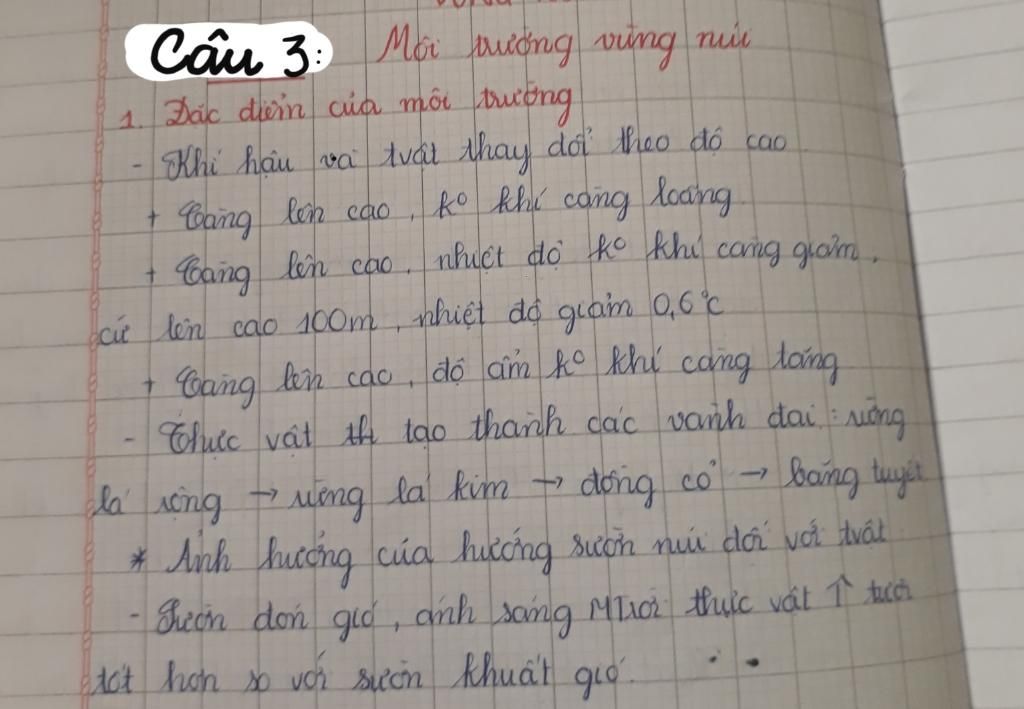 Câu 3: Môi trường vùng núi
1. Đặc điểm của môi trường
- Khí hậu và tvật thay đổi theo độ cao
+ Càng lên cao, ko khí càng loãng
+ Càng lên cao, nhiệt độ ko khí càng giảm,
cứ lên cao 100m, nhiệt độ giảm 0,6°C
+ Càng lên cao, độ ẩm ko khí càng tăng
- Thực vật th tạo thành các vành đai: rừng
lá rộng → rừng lá kim → đồng cỏ → băng tuyết
* Ảnh hưởng của hướng sườn núi đối với tvật
- Sườn đón gió, ánh sáng MTrời thực vật ↑ tươi
tốt hơn so với sườn khuất gió.